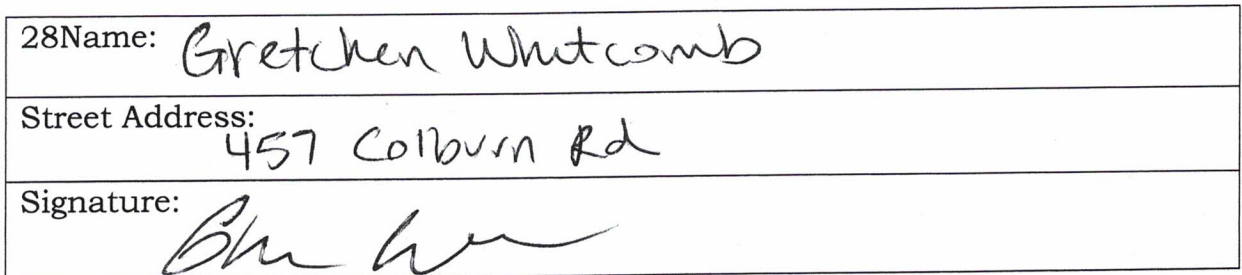 28Name: Gretchen Whitcomb
Street Address: 457 Colburn Rd
Signature: